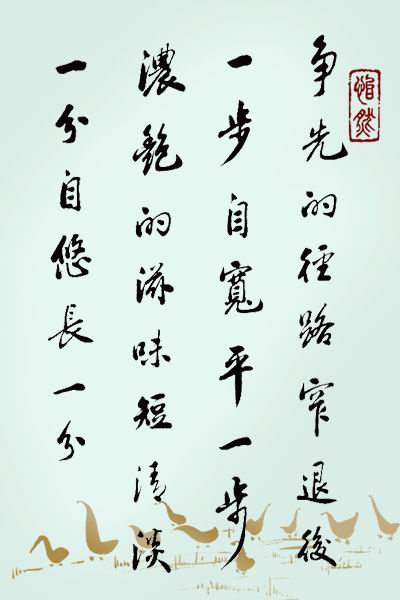 争先的徑路窄退後
一步自寬平一步
濃艷的滋味短清淡
一分自悠長一分